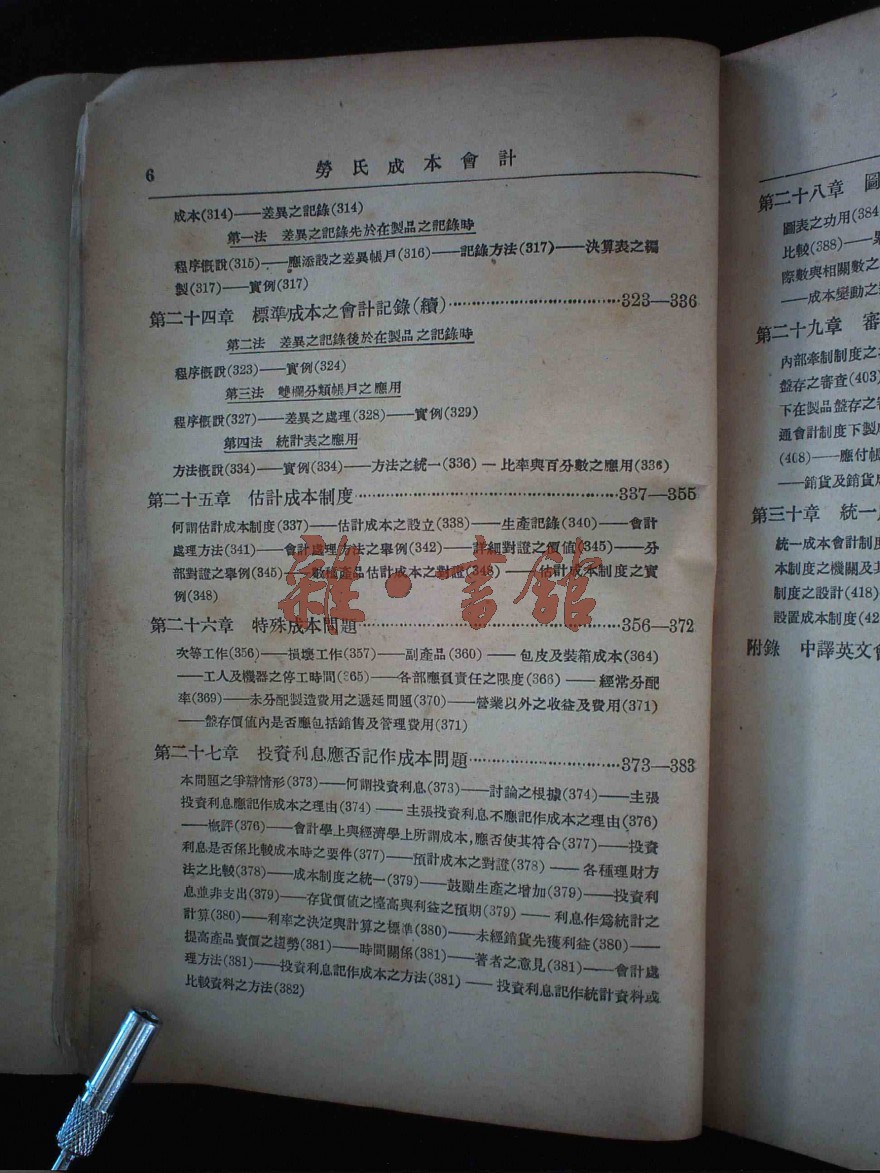 6 勞氏成本會計
成本(314)——差異之記錄(314)
第一法 差異之記錄先於在製品之記錄時
程序槪說(315)——應添設之差異帳戶(316)——記錄方法(317)——決算表之編
製(317)——實例(317)
第二十四章 標準成本之會計記錄(續)……323—336
第二法 差異之記錄後於在製品之記錄時
程序槪說(323)——實例(324)
第三法 雙欄分類帳戶之應用
程序槪說(327)——差異之處理(328)——實例(329)
第四法 統計表之應用
方法槪說(334)——實例(334)——方法之統一(336)—比率與百分數之應用(336)
第二十五章 估計成本制度……337—355
何謂估計成本制度(337)——估計成本之設立(338)——生產記錄(340)——會計
處理方法(341)——會計處理方法之舉例(342)——詳細對證之價值(345)——分
部對證之舉例(345)——數種產品估計成本之對證(348)——估計成本制度之實
例(348)
第二十六章 特殊成本問題……356—372
次等工作(356)——損壞工作(357)——副產品(360)——包皮及裝箱成本(364)
——工人及機器之停工時間(365)——各部應負責任之限度(366)——經常分配
率(369)——未分配製造費用之遞延問題(370)——營業以外之收益及費用(371)
——盤存價值內是否應包括銷售及管理費用(371)
第二十七章 投資利息應否記作成本問題……373—383
本問題之爭辯情形(373)——何謂投資利息(373)——討論之根據(374)——主張
投資利息應記作成本之理由(374)——主張投資利息不應記作成本之理由(376)
——槪評(376)——會計學上與經濟學上所謂成本,應否使其符合(377)——投資
利息是否係比較成本時之要件(377)——預計成本之對證(378)——各種理財方
法之比較(378)——成本制度之統一(379)——鼓勵生產之增加(379)——投資利
息並非支出(379)——存貨價值之擡高與利益之預期(379)——利息作爲統計之
計算(380)——利率之決定與計算之標準(380)——未經銷貨先獲利益(380)——
提高產品賣價之趨勢(381)——時間關係(381)——著者之意見(381)——會計處
理方法(381)——投資利息記作成本之方法(381)——投資利息記作統計資料或
比較資料之方法(382)
雜·書館
第二十八章 圖
圖表之功用(384
比較(388)——
際數與相關數之
——成本變動之
第二十九章 審
內部牽制制度之
盤存之審查(403)
下在製品盤存之
通會計制度下製
(408)——應付帳
——銷貨及銷貨
第三十章 統一
統一成本會計制度
本制度之機關及其
制度之設計(418)
設置成本制度(42
附錄 中譯英文會